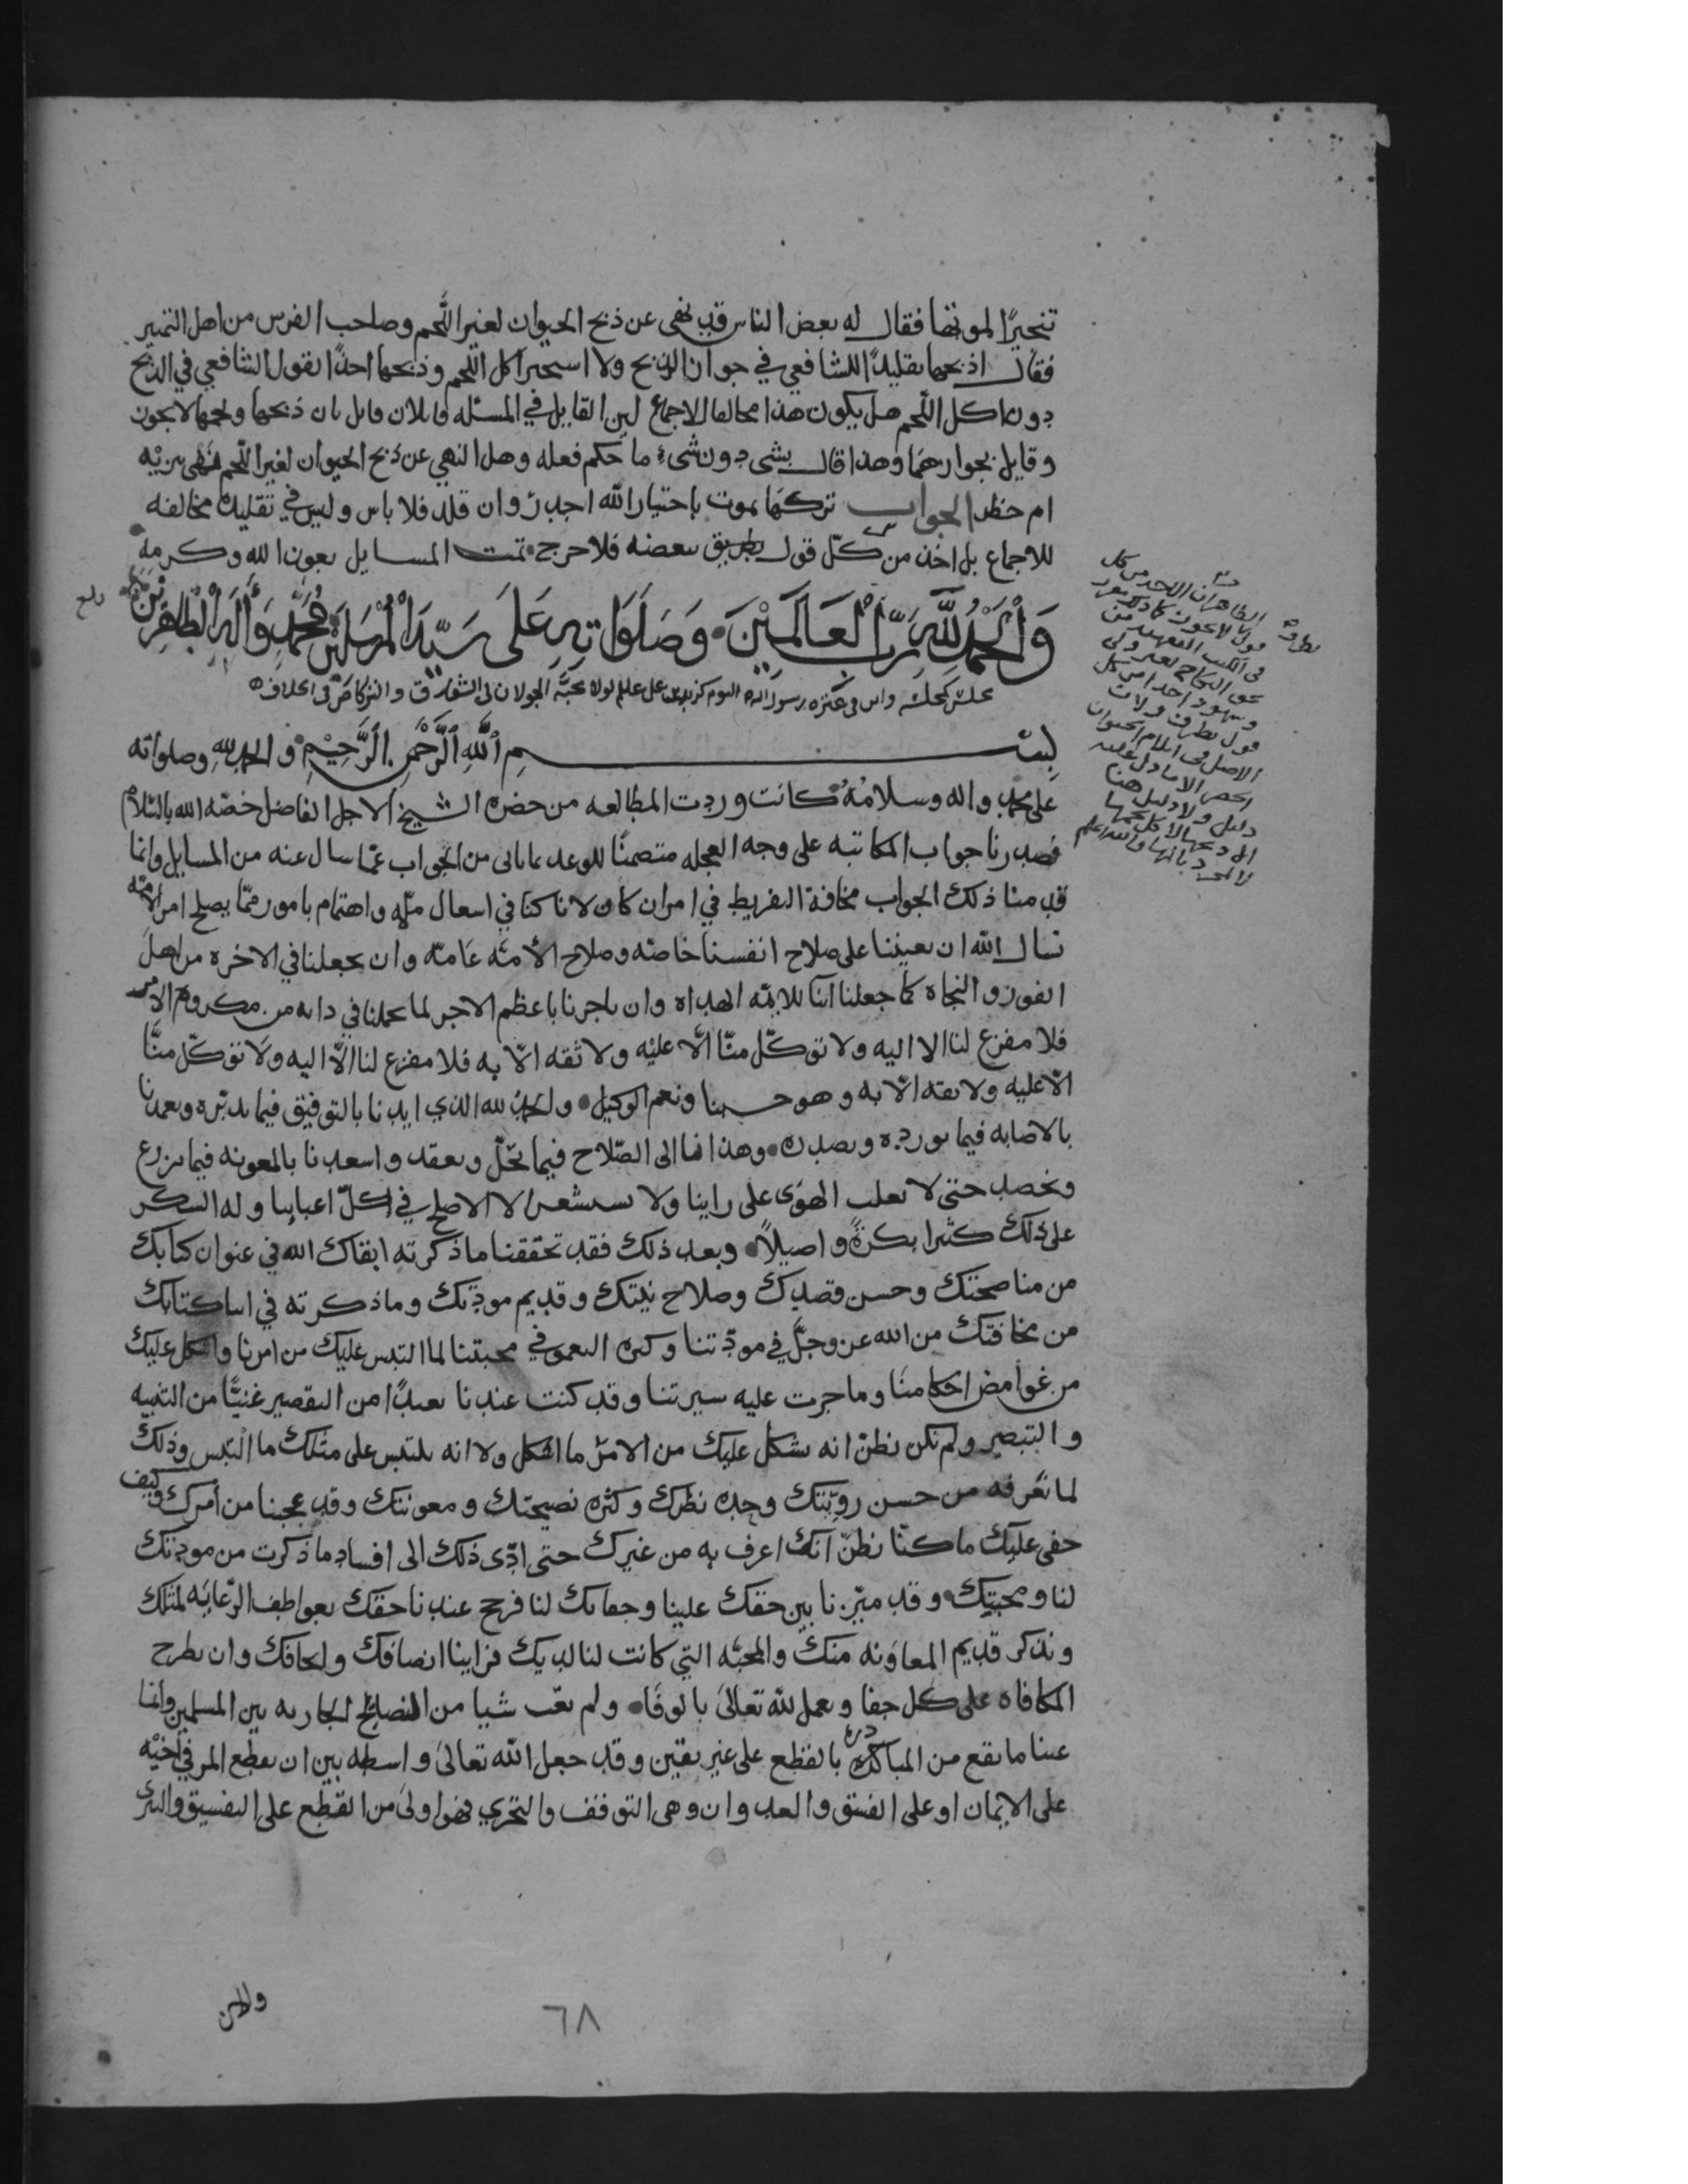 تنحيرًا لموتها فقال له بعض الناس قد نهى عن ذبح الحيوان لغير اللحم وصاحب الفرس من اهل التميز
فقال اذبحها تقليدًا للشافعي في جواز الذبح ولا استجيز اكل اللحم وذبحها اخذًا بقول الشافعي في الذبح
دون اكل اللحم هل يكون هذا مخالفا للاجماع لين القايل في المسئله قايلان قايل بان ذبحها ولحمها لا يجوز
وقايل بجوازهما وهذا قال بشى دون شىء ما حكم فعله وهل النهي عن ذبح الحيوان لغير اللحم نهى تنزيه
ام حظر الجواب تركها تموت باختيار الله اجدر وان قلد فلا باس وليس في تقليده مخالفه
للاجماع بل اخذ من كل قول بطريق بعضه فلا حرج تمت المسايل بعون الله وكرمه
وَالْحَمْدُ لِلَّهِ رَبِّ الْعَالَمِيْنَ وَصَلَوَاتِهِ عَلَى سَيِّدِ الْمُرْسَلِيْنَ مُحَمَّدٍ وَآلِهِ الطَّاهِرِيْنَ
بسم الله الرحمن الرحيم والحمد لله وصلواته
على محمد واله وسلامه كانت وردت المطالعه من حضره الشيخ الاجل الفاضل خصّه الله بالسّلام
فصدرنا جواب المكاتبه على وجه العجله متضمنًا للوعد بما ياتى من الجواب عمّا سال عنه من المسايل وانما
قدمنا ذلك الجواب مخافة التفريط في امر ان كان لانا كنا في اشغال ملّه واهتمام بامور ممّا يصلح امر الامّه
نسال الله ان يعيننا على صلاح انفسنا خاصّه وصلاح الأمّه عَامّه وان يجعلنا في الاخره من اهل
الفوز والنجاه كما جعلنا ابنا للايمّه الهداه وان ياجرنا باعظم الاجر لما تحملنا في ذاته من مكروه الامر
فلا مفزع لنا الا اليه ولا توكّل منّا الّا عليْه ولا ثقه الّا به فلا مفزع لنا الّا اليه ولا توكّل منّا
الّا عليه ولا ثقه الّا به وهو حسبنا ونعم الوكيل والحمد لله الذي ايدنا بالتوفيق فيما ندبّره وتعمدنا
بالاصابه فيما نورده ونصدره وهدانا الى الصّلاح فيما نحلّ ونعقد واسعدنا بالمعونه فيما نزرع
ونحصد حتى لا يغلب الهوى على راينا ولا نستشعر الا الاصلح في كلّ اعبائنا وله الشكر
على ذلك كثيرا بكرةً واصيلاً وبعد ذلك فقد تحققنا ما ذكرته ابقاك الله في عنوان كتابك
من مناصحتك وحسن قصدك وصلاح نيّتك وقديم مودتك وما ذكرته في اثنا كتابك
من مخافتك من الله عز وجلّ في مودّتنا وكثره التعمق في محبتنا لما التبس عليك من امرنا واشكل عليك
من غوامض احكامنا وما جرت عليه سيرتنا وقد كنت عندنا بعيدًا من التقصير غنيًّا من التنبيه
والتبصير ولم نكن نظنّ انه يشكل عليك من الامر ما اشكل ولا انه يلتبس على مثلك ما التبس وذلك
لما نعرفه من حسن رويّتك وجده نظرك وكثره نصيحتك ومعونتك وقد عجبنا من امرك وكيف
خفى عليك ما كنّا نظنّ انك اعرف به من غيرك حتى ادّى ذلك الى افساد ما ذكرت من مودتك
لنا ومحبتك وقد ميّزنا بين حقك علينا وجفائك لنا فرجح عندنا حقك بعواطف الرّعايه لمثلك
ونذكر قديم المعاونه منك والمحبّه التي كانت لنا لديك فراينا انصافك والحافك وان نطرح
المكافاه على كل جفا ونعمل لله تعالى بالوفا ولم نعب شيا من النصايح الجاريه بين المسلمين وانما
عبنا ما يقع من المبادره بالقطع على غير يقين وقد جعل الله تعالى واسطه بين ان يقطع المر في اخيه
على الايمان او على الفسق والعدوان وهى التوقف والتحري فهو اولى من القطع على التفسيق والتبرى
٦٨